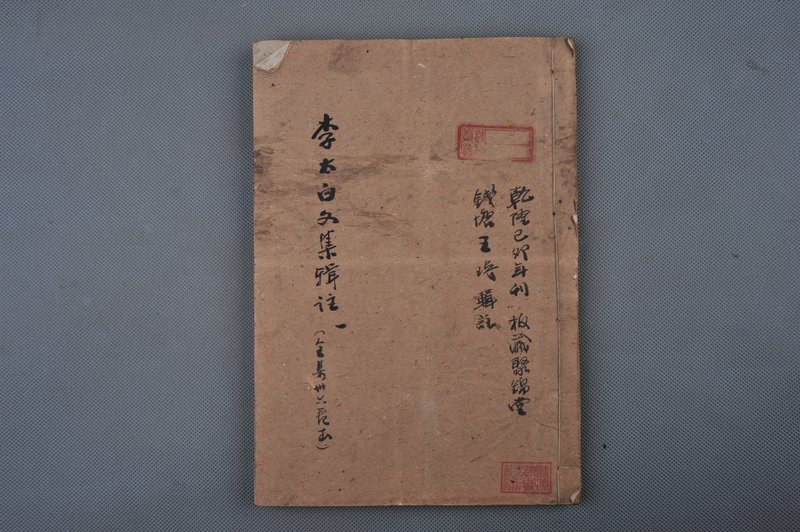 乾隆己卯年刊 板藏聚錦堂
錢塘王琦輯註
李太白文集輯註 一
(全集卅六卷